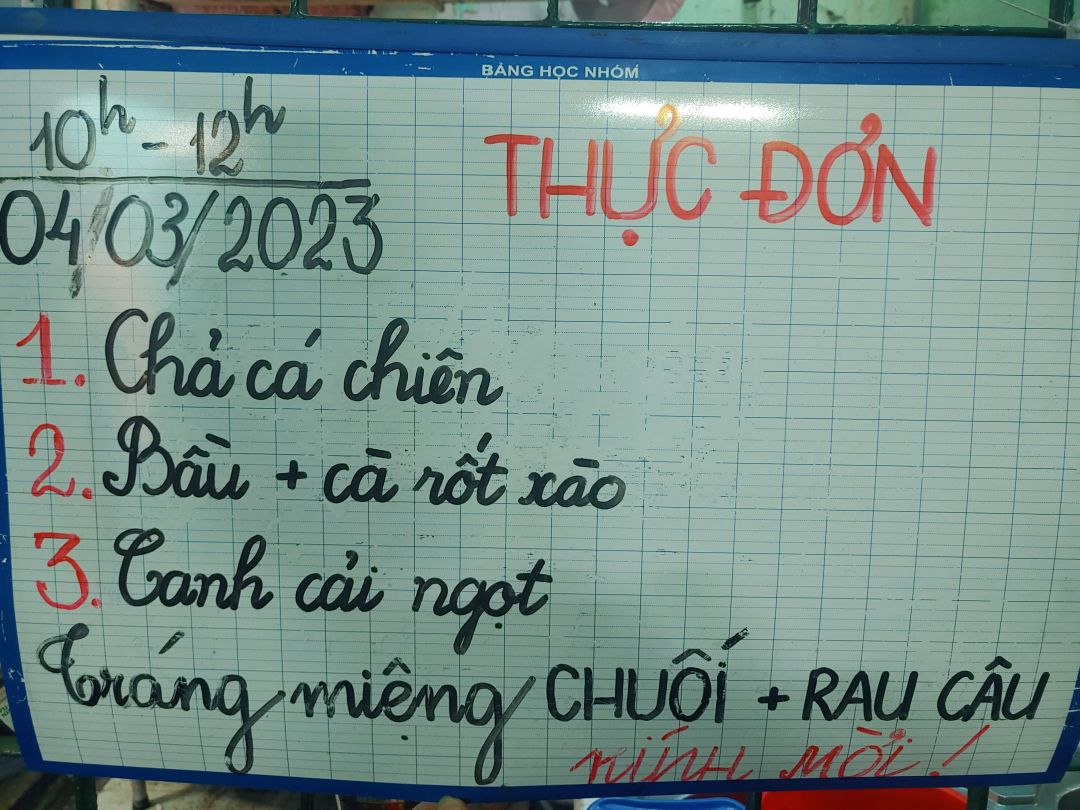 BẢNG HỌC NHÓM
10h - 12h
THỰC ĐƠN
04/03/2023
1. Chả cá chiên
2. Bầu + cà rốt xào
3. Canh cải ngọt
Tráng miệng CHUỐI + RAU CÂU
KÍNH MỜI!